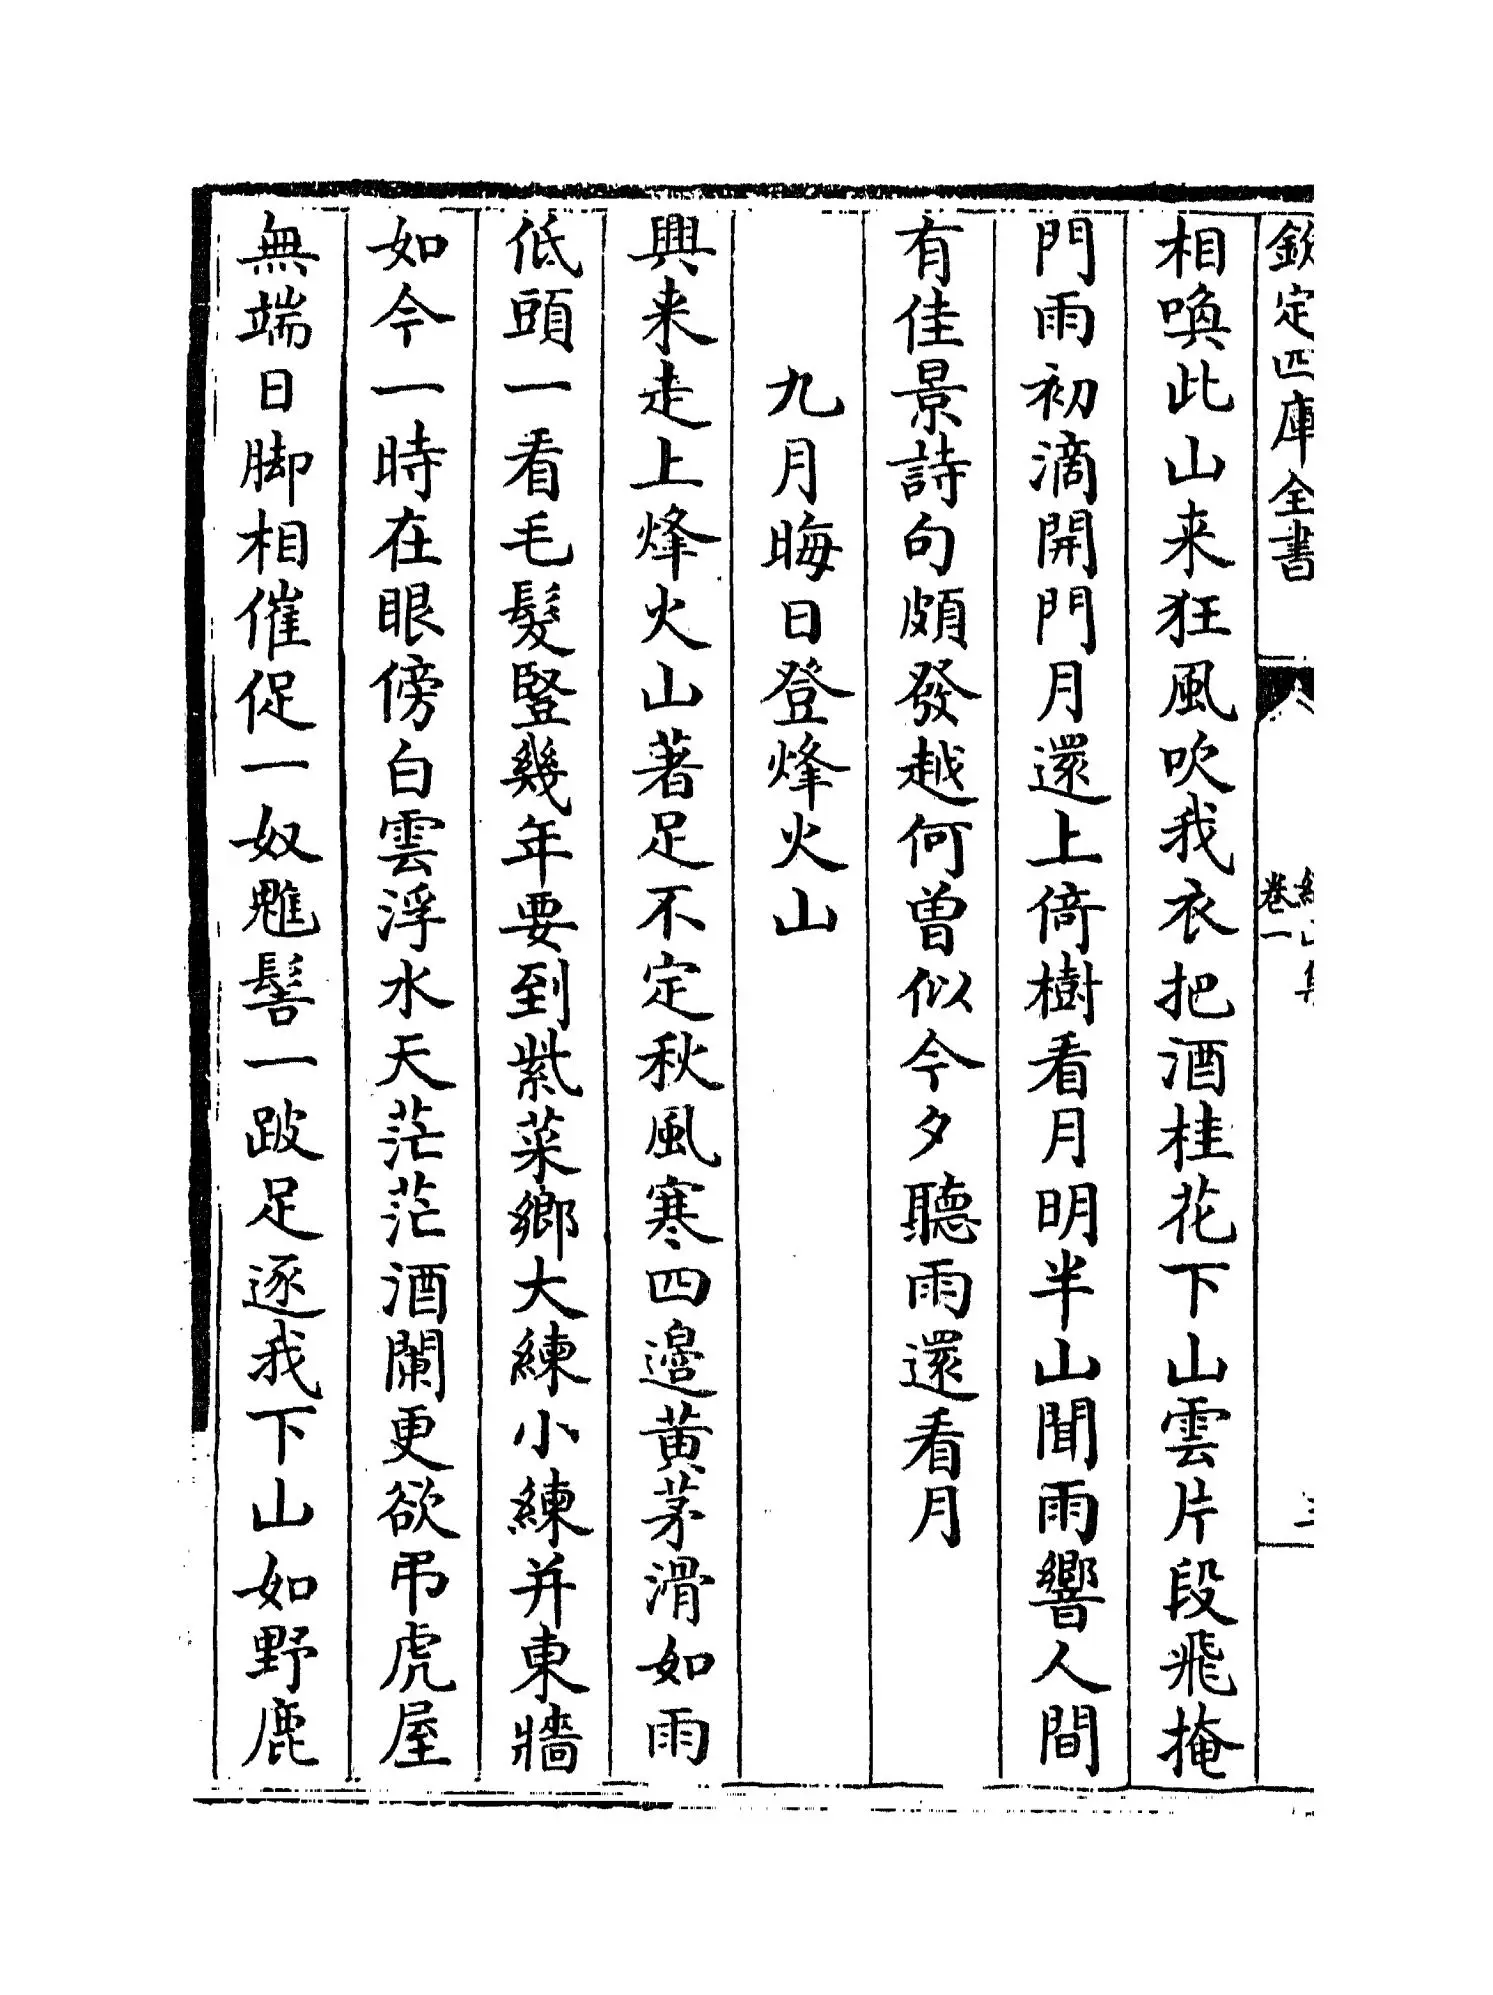 欽定四庫全書
卷一
相喚此山来狂風吹我衣把酒桂花下山雲片段飛掩
門雨初滴開門月還上倚樹看月明半山聞雨響人間
有佳景詩句頗發越何曽似今夕聽雨還看月
九月晦日登烽火山
興来走上烽火山著足不定秋風寒四邉黄茅滑如雨
低頭一看毛髮豎幾年要到紫菜鄉大練小練并東牆
如今一時在眼傍白雲浮水天茫茫酒闌更欲弔虎屋
無端日脚相催促一奴魋髻一跛足逐我下山如野鹿